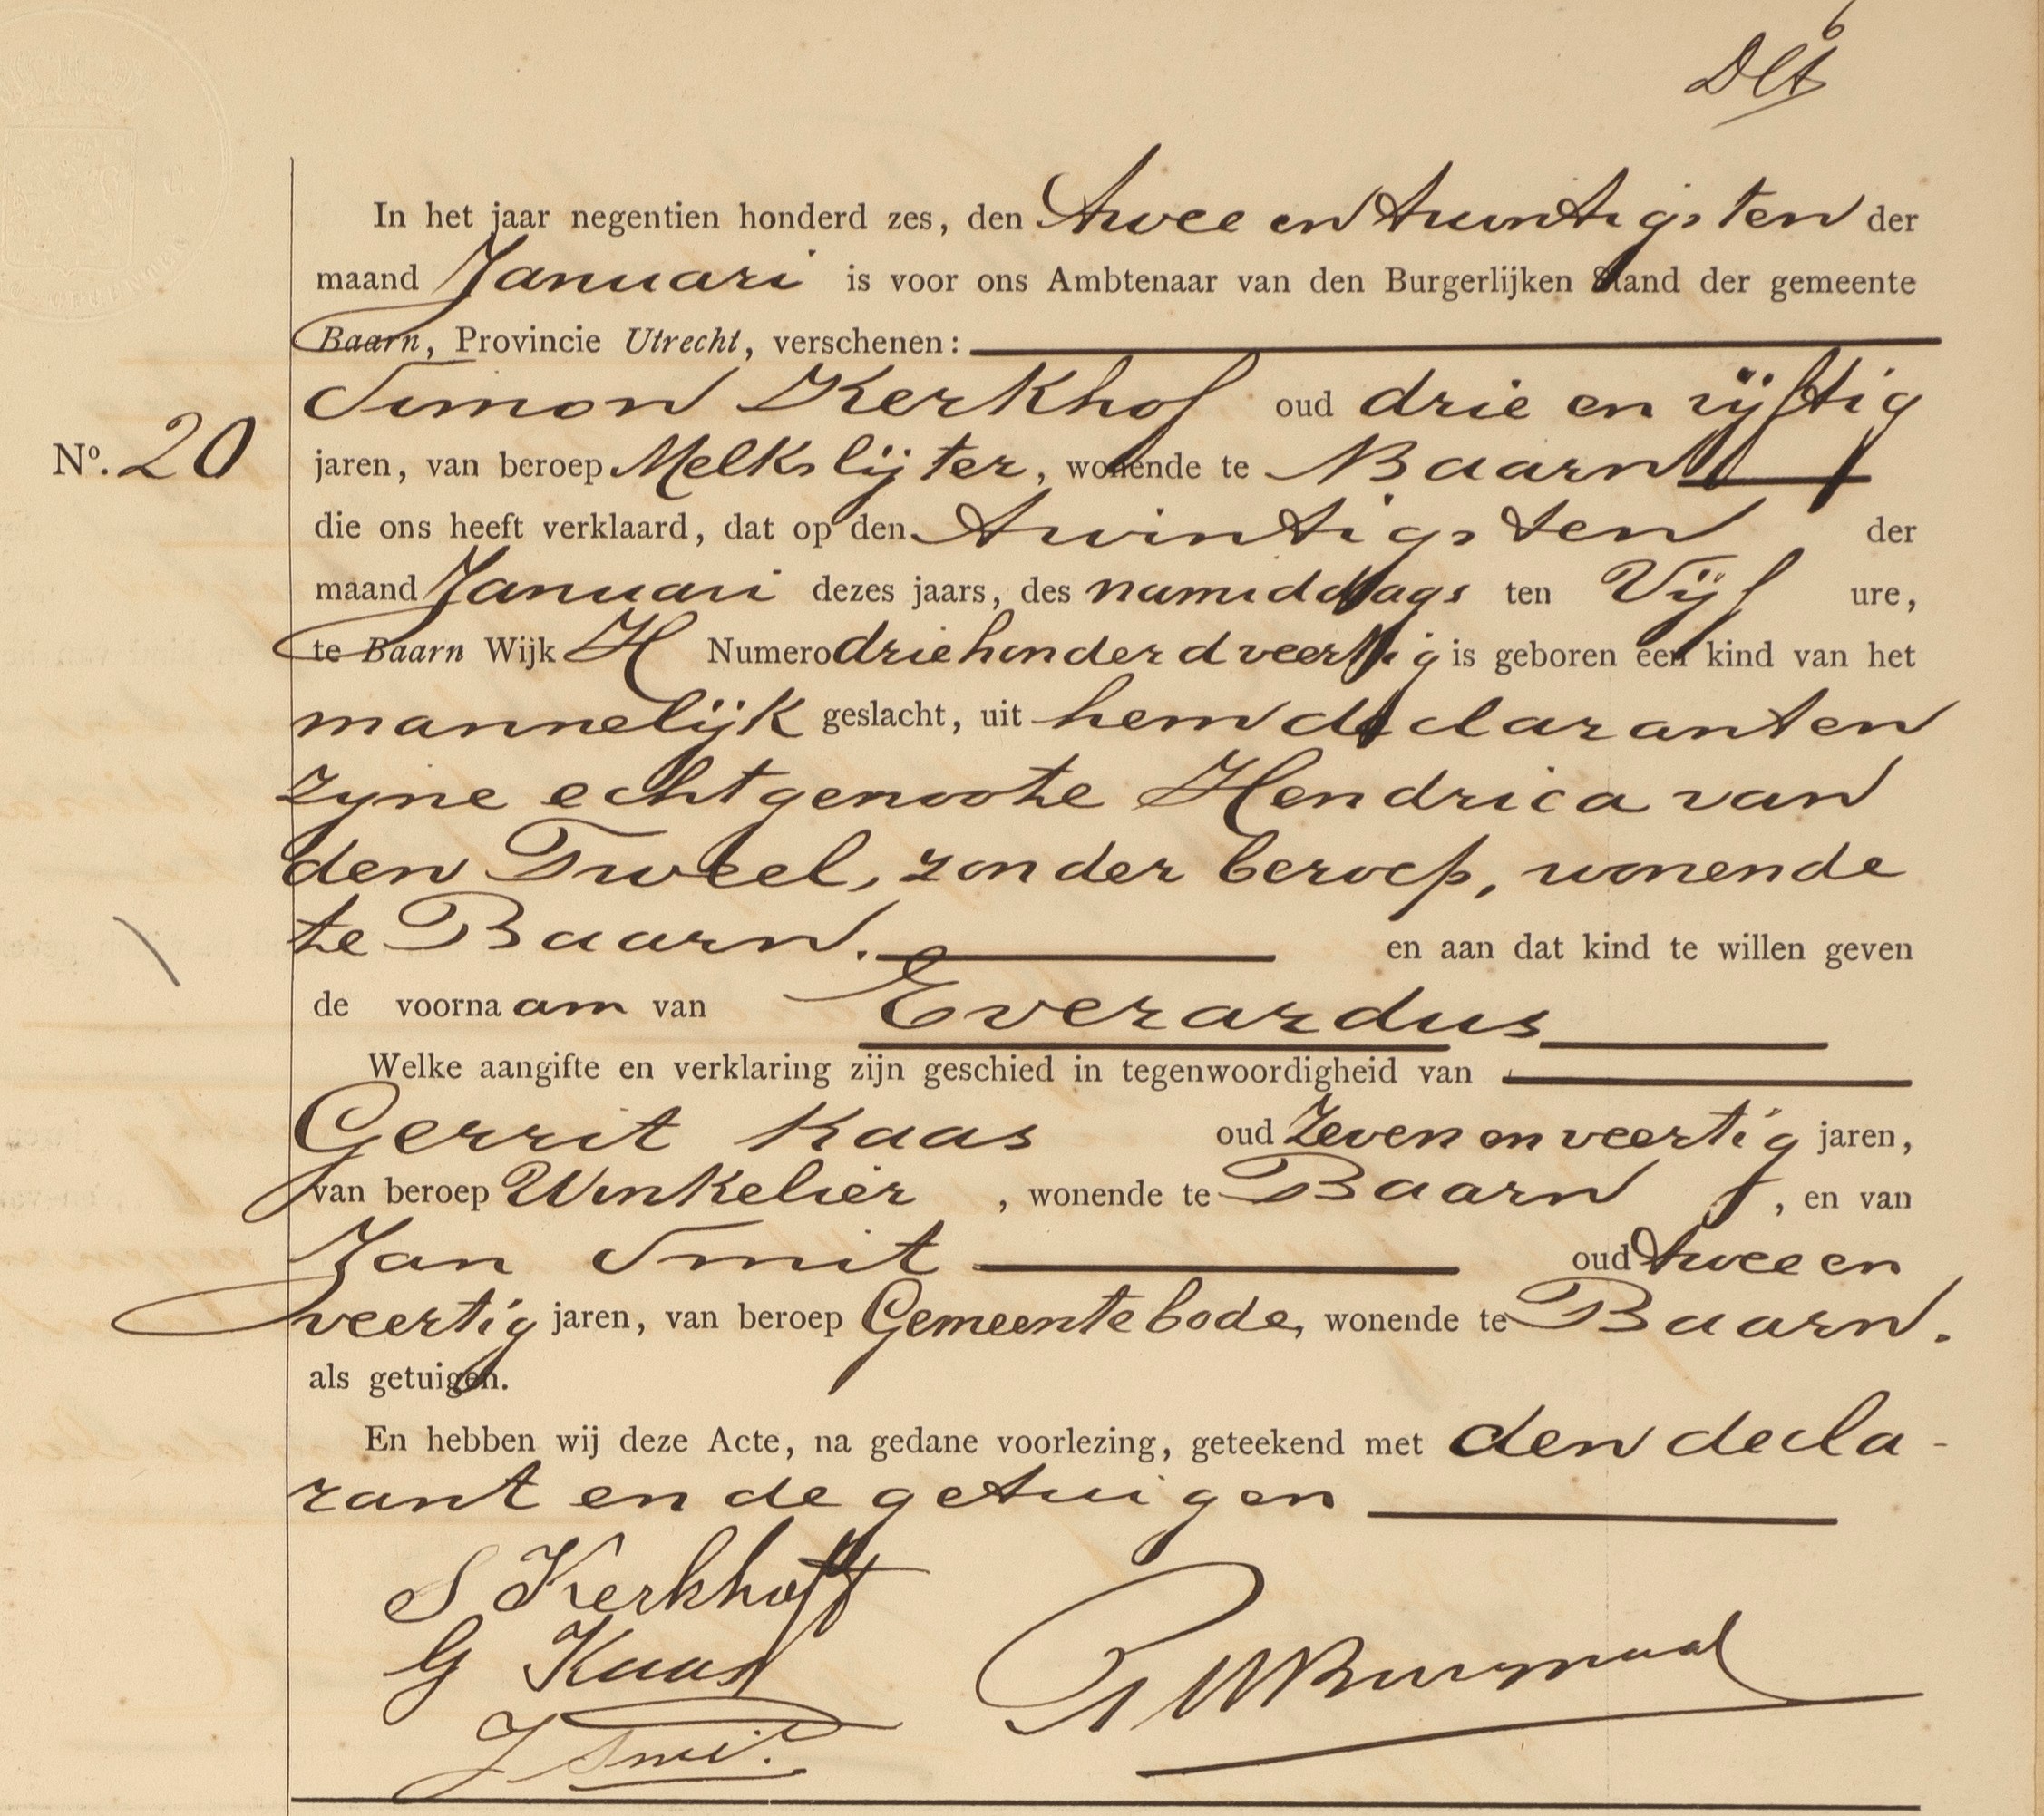 6
In het jaar negentien honderd zes, den twee en twintigsten der
maand Januari is voor ons Ambtenaar van den Burgerlijken Stand der gemeente
Baarn, Provincie Utrecht, verschenen:
Simon Kerkhof oud drie en vijftig
No. 20 jaren, van beroep Melkslijter, wonende te Baarn
die ons heeft verklaard, dat op den twintigsten der
maand Januari dezes jaars, des namiddags ten Vijf ure,
te Baarn Wijk H Numero driehonderd veertig is geboren een kind van het
mannelijk geslacht, uit hem declaranten
zyne echtgenoote Hendrica van
den Tweel, zonder beroep, wonende
te Baarn. en aan dat kind te willen geven
de voornaam van Everardus
Welke aangifte en verklaring zijn geschied in tegenwoordigheid van
Gerrit Kaas oud Zeven en veertig jaren,
van beroep Winkelier, wonende te Baarn, en van
Jan Smit oud twee en
veertig jaren, van beroep Gemeentebode, wonende te Baarn.
als getuigen.
En hebben wij deze Acte, na gedane voorlezing, geteekend met den decla-
rant en de getuigen
S Kerkhoff
G Kaas
J Smit